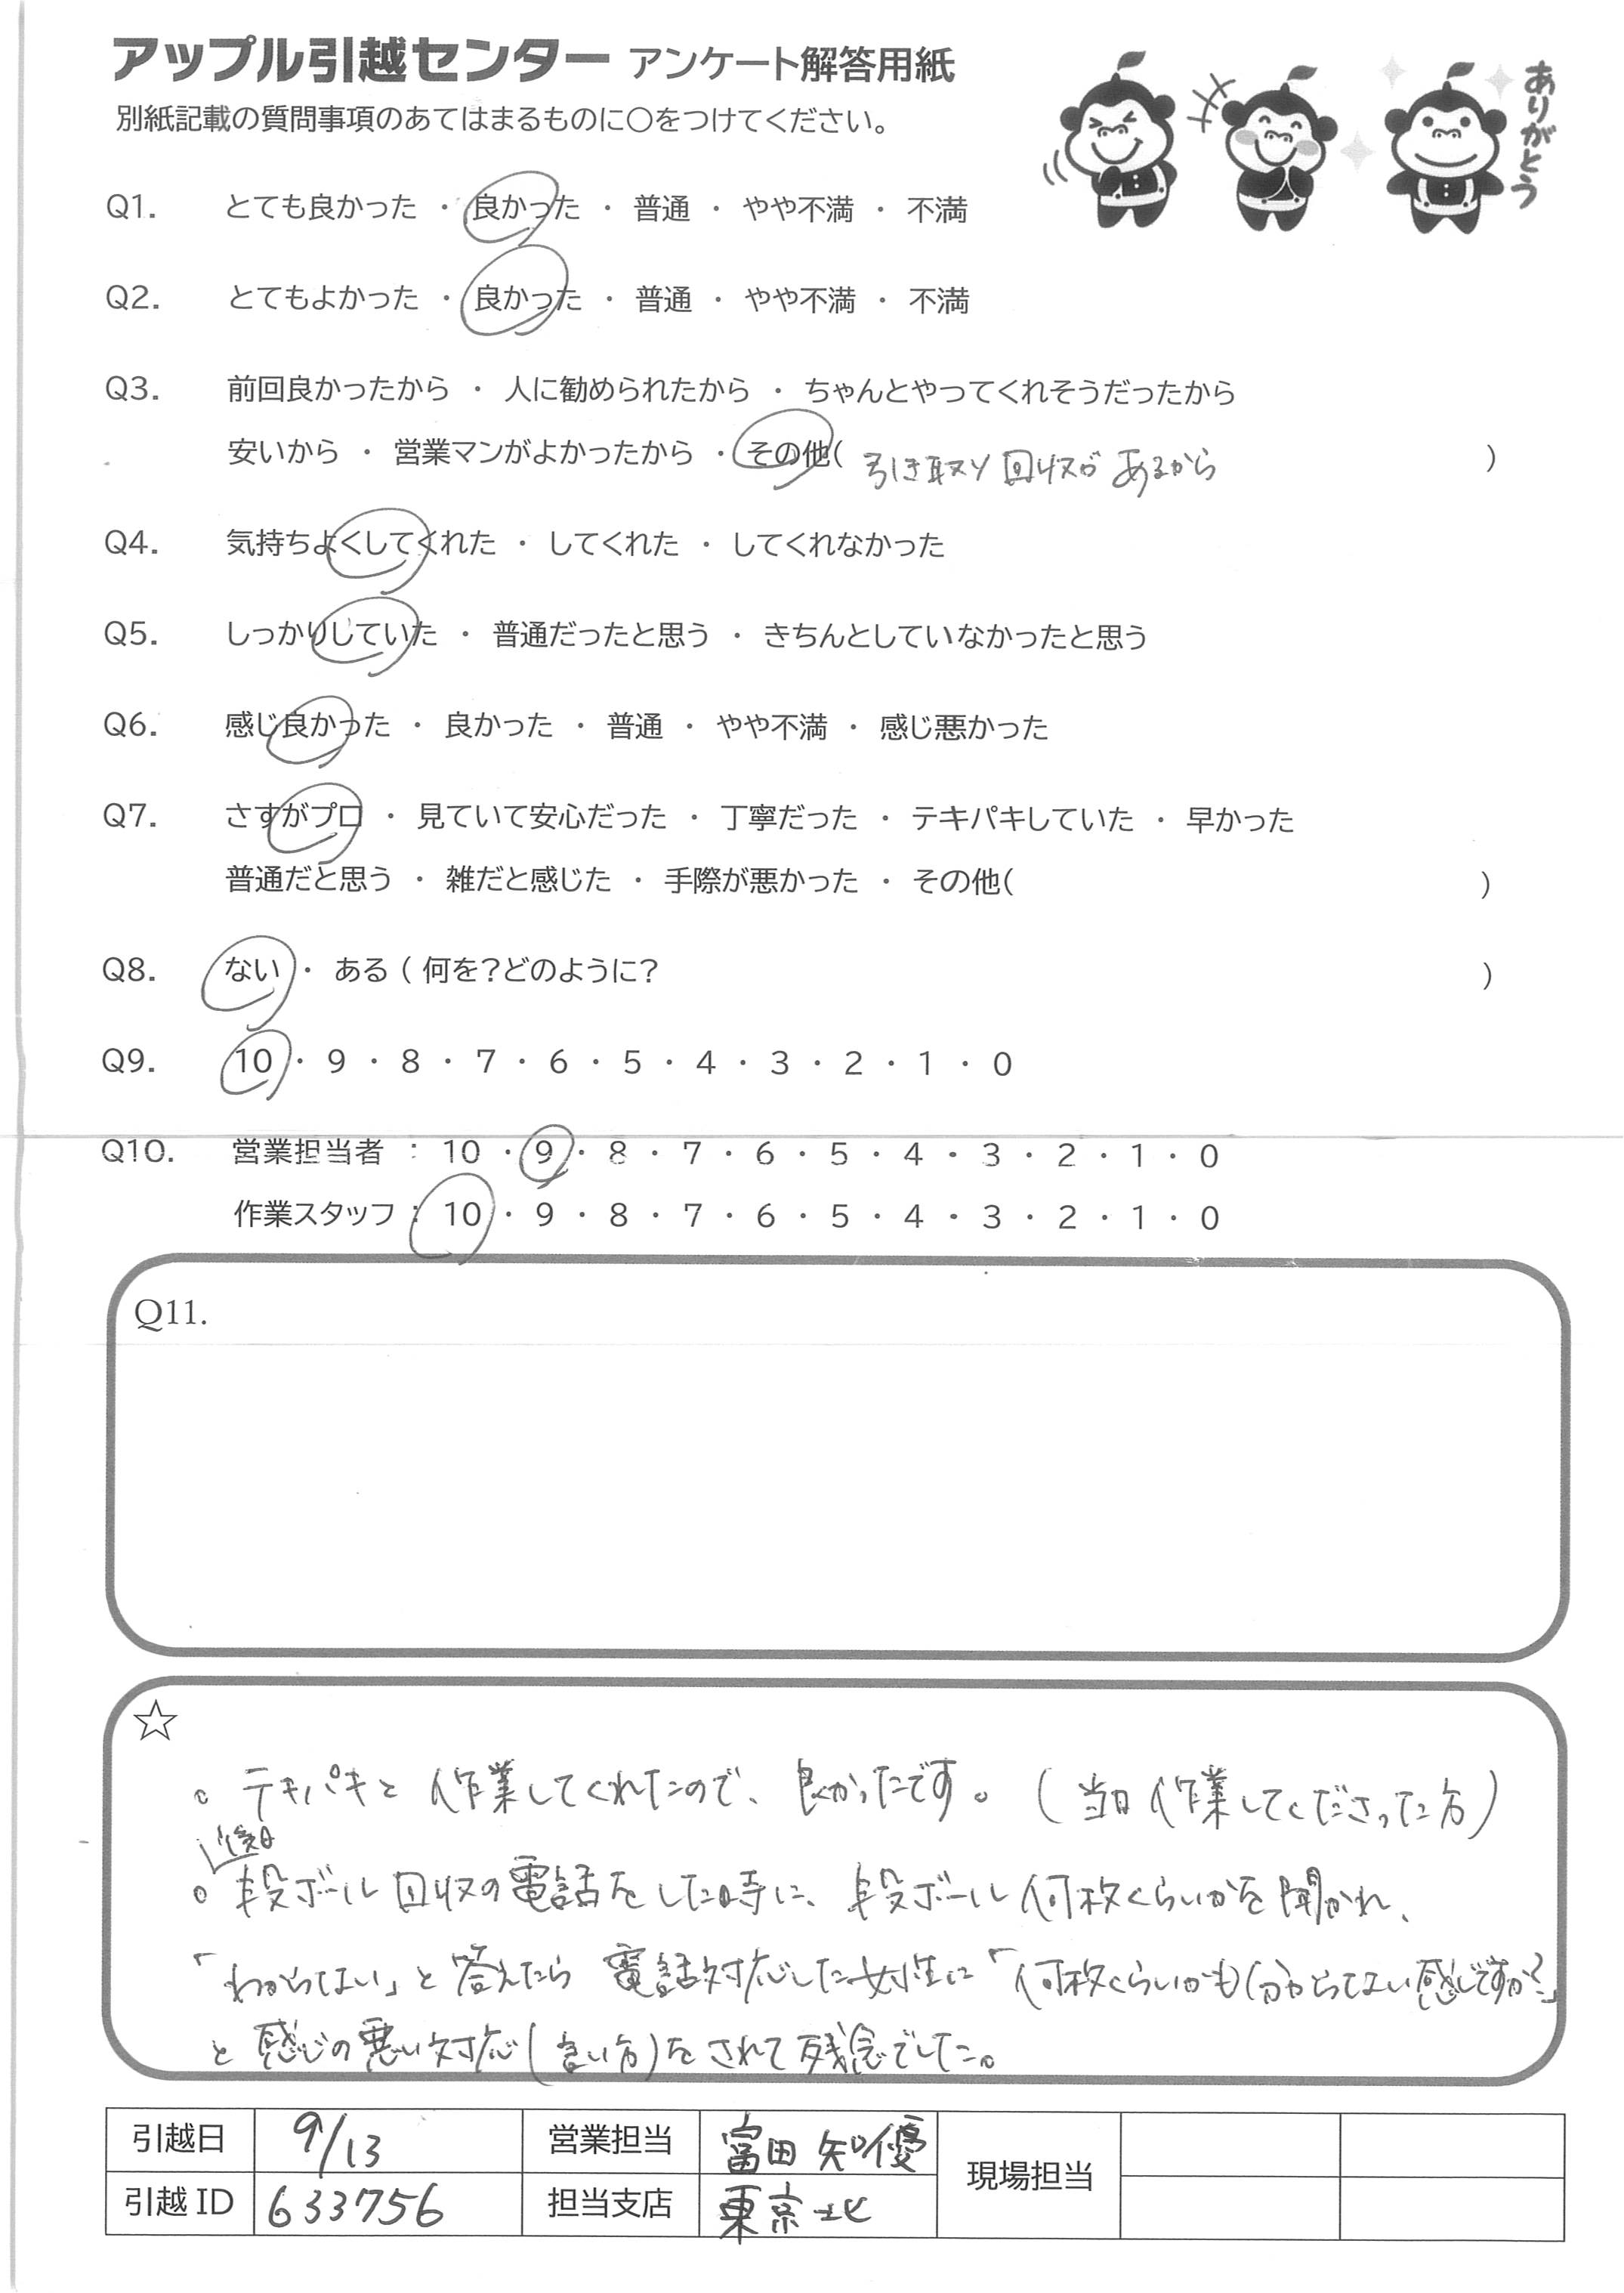 アップル引越センター アンケート解答用紙
別紙記載の質問事項のあてはまるものに○をつけてください。
ありがとう
Q1. とても良かった ・ 良かった ・ 普通 ・ やや不満 ・ 不満
Q2. とてもよかった ・ 良かった ・ 普通 ・ やや不満 ・ 不満
Q3. 前回良かったから ・ 人に勧められたから ・ ちゃんとやってくれそうだったから
安いから ・ 営業マンがよかったから ・ その他( 引き取り回収があるから )
Q4. 気持ちよくしてくれた ・ してくれた ・ してくれなかった
Q5. しっかりしていた ・ 普通だったと思う ・ きちんとしていなかったと思う
Q6. 感じ良かった ・ 良かった ・ 普通 ・ やや不満 ・ 感じ悪かった
Q7. さすがプロ ・ 見ていて安心だった ・ 丁寧だった ・ テキパキしていた ・ 早かった
普通だと思う ・ 雑だと感じた ・ 手際が悪かった ・ その他( )
Q8. ない ・ ある ( 何を?どのように? )
Q9. 10 ・ 9 ・ 8 ・ 7 ・ 6 ・ 5 ・ 4 ・ 3 ・ 2 ・ 1 ・ 0
Q10. 営業担当者 : 10 ・ 9 ・ 8 ・ 7 ・ 6 ・ 5 ・ 4 ・ 3 ・ 2 ・ 1 ・ 0
作業スタッフ : 10 ・ 9 ・ 8 ・ 7 ・ 6 ・ 5 ・ 4 ・ 3 ・ 2 ・ 1 ・ 0
Q11.
☆
○ テキパキと作業してくれたので、良かったです。(当日作業してくださった方)
後日
○ 段ボール回収の電話をした時に、段ボール何枚くらいかを聞かれ、
「わからない」と答えたら電話対応した女性に「何枚くらいかも分からない感じですか?」
と感じの悪い対応(言い方)をされて残念でした。
引越日 9/13 営業担当 富田 知優 現場担当
引越ID 633756 担当支店 東京北